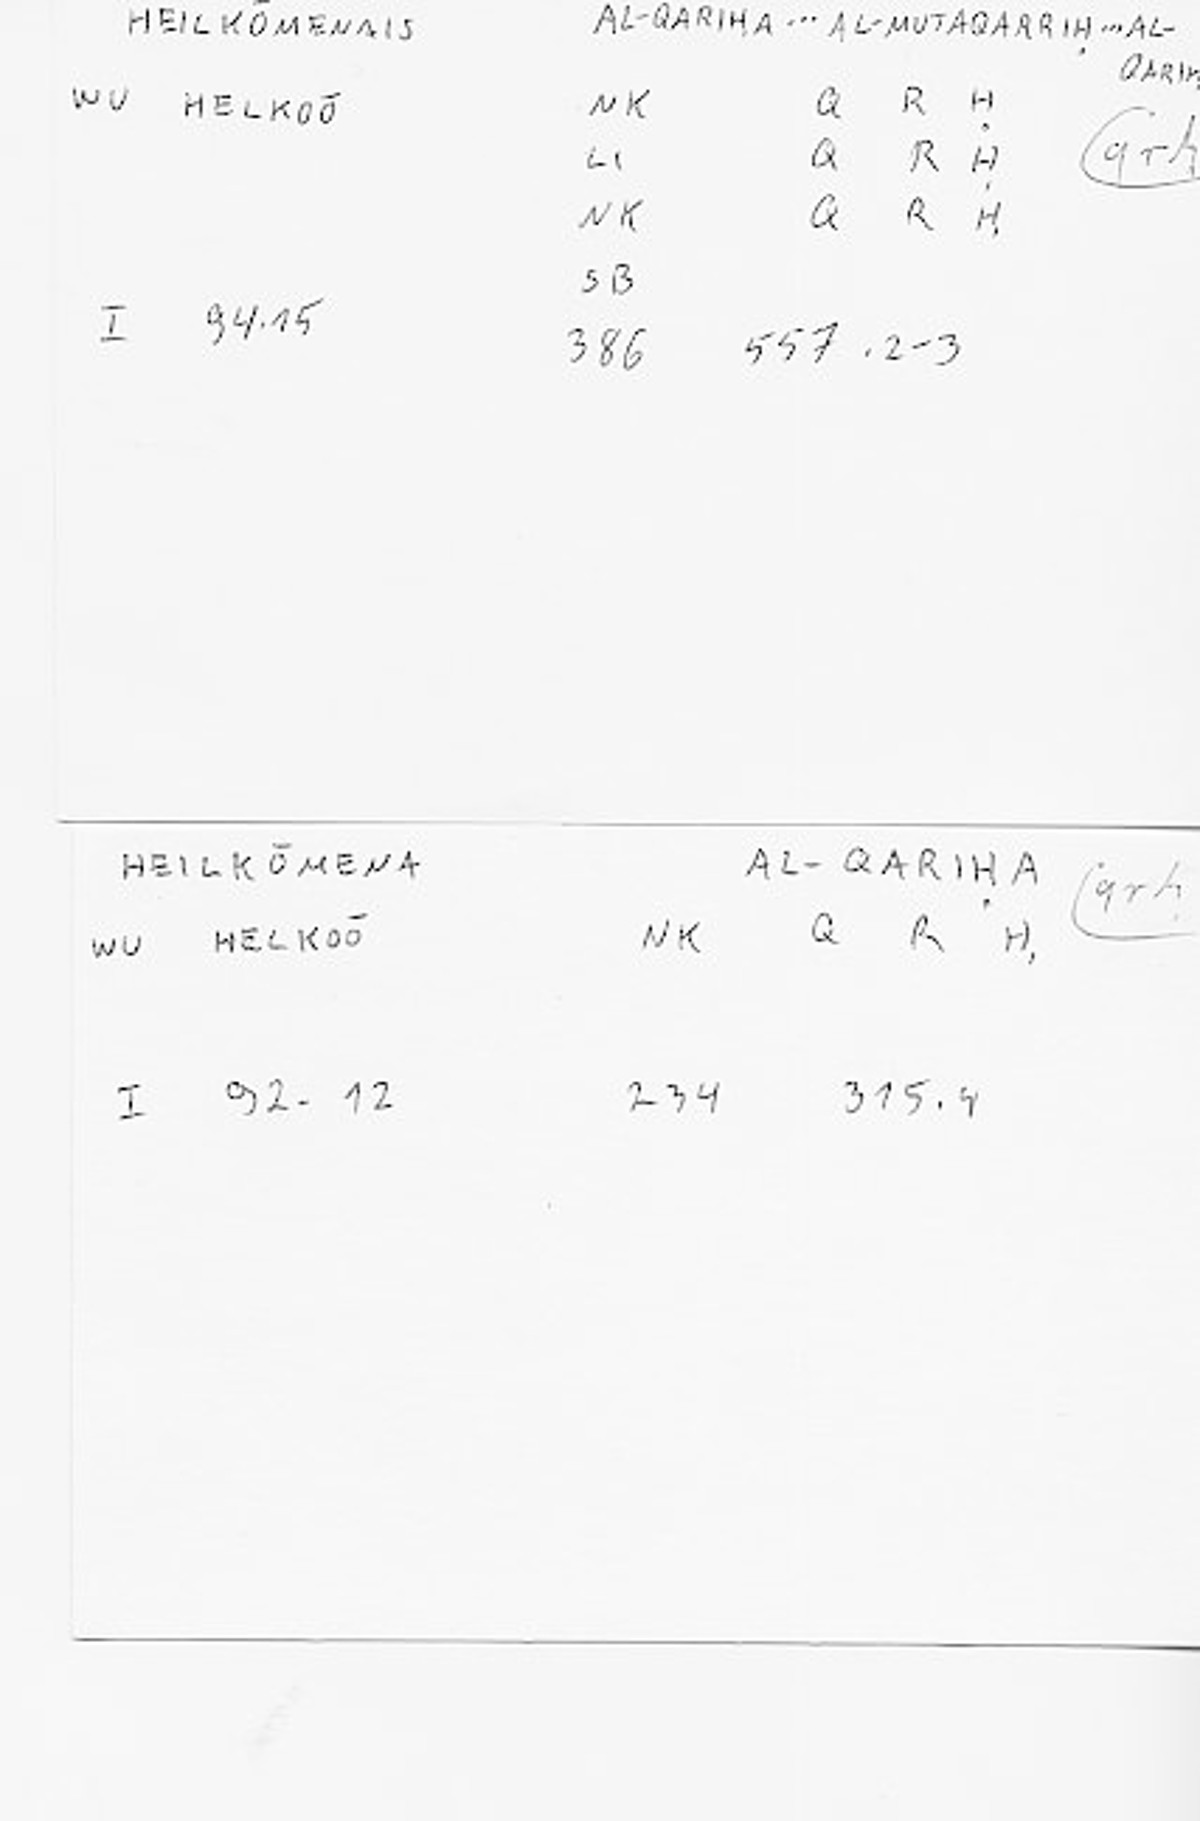 HEILKŌMENAIS AL-QARIHA ... AL-MUTAQARRIḤ ... AL-
WU HELKOŌ NK Q R Ḥ
LI Q R Ḥ (qrḥ
NK Q R Ḥ
SB
I 94.15 386 557.2-3
HEILKŌMENA AL-QARIḤA (qrḥ
WU HELKOŌ NK Q R Ḥ
I 92-12 234 315.4